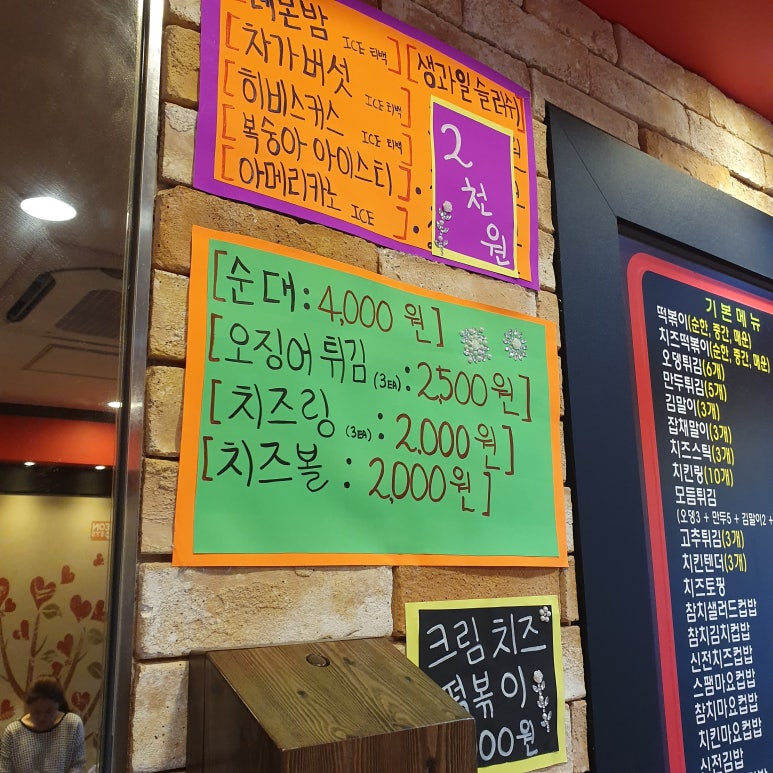 레몬밤 ICE 티백
[차가버섯 ICE 티백]
[히비스커스 ICE 티백]
[복숭아 아이스티]
[아메리카노 ICE]
[생과일슬러쉬]
2천원
[순대:4,000원]
[오징어튀김(3EA):2,500원]
[치즈링(3EA):2,000원]
[치즈볼:2,000원]
크림치즈
떡볶이
00원
기본메뉴
떡볶이(순한, 중간, 매운)
치즈떡볶이(순한, 중간, 매운)
오뎅튀김(6개)
만두튀김(5개)
김말이(3개)
잡채말이(3개)
치즈스틱(3개)
치킨링(10개)
모듬튀김
(오뎅3 + 만두5 + 김말이2 +
고추튀김(3개)
치킨텐더(3개)
치즈토핑
참치샐러드컵밥
참치김치컵밥
신전치즈컵밥
스팸마요컵밥
참치마요컵밥
치킨마요컵밥
신전김밥